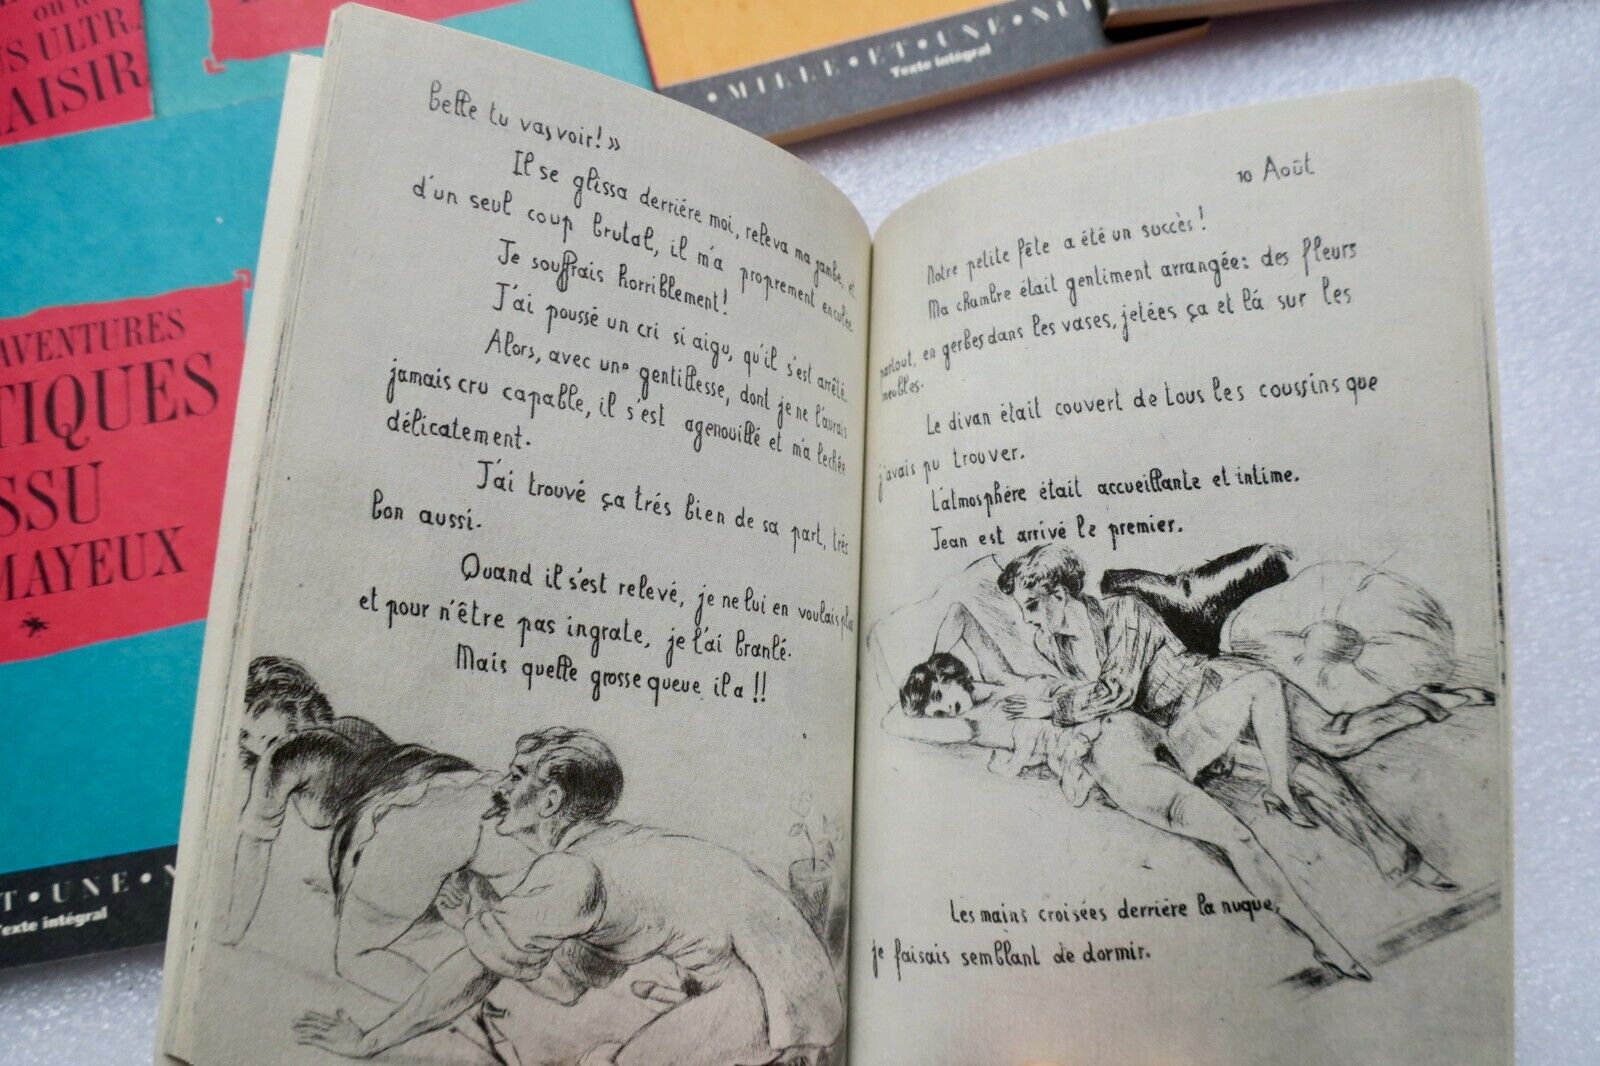 ON R
US ULTRA
LAISIR
MILLE • ET • UNE • NUI
Texte intégral
AVENTURES
TIQUES
SSU
MAYEUX
T • UNE • N
Texte intégral
belle tu vas voir! »
Il se glissa derriére moi, releva ma jambe, et
d'un seul coup brutal, il m'a proprement enculée.
Je souffrais horriblement!
J'ai poussé un cri si aigu, qu'il s'est arrêté.
Alors, avec une gentillesse, dont je ne l'aurais
jamais cru capable, il s'est agenouillé et m'a lechée
délicatement.
J'ai trouvé ça trés bien de sa part, trés
bon aussi.
Quand il s'est relevé, je ne lui en voulais plus
et pour n'être pas ingrate, je l'ai branlé.
Mais quelle grosse queue il a !!
10 Août
Notre petite fête a été un succès!
Ma chambre était gentiment arrangée: des fleurs
partout, en gerbes dans les vases, jetées ça et lá sur les
meubles.
Le divan était couvert de tous les coussins que
j'avais pu trouver.
L'atmosphère était accueillante et intime.
Jean est arrivé le premier.
Les mains croisées derriére la nuque,
je faisais semblant de dormir.